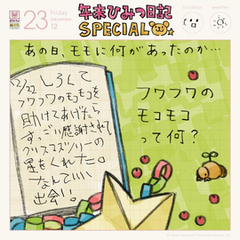 23 Friday
12
年末ひみつ日記
SPECIAL
あの日、モモに何があったのか…
12/22 しろくて
フワフワのモコモコを
助けてあげたら
すっごい感謝されて
クリスマスツリーの
星をくれた。
なんていい
出会い。
フワフワの
モコモコ
って何?